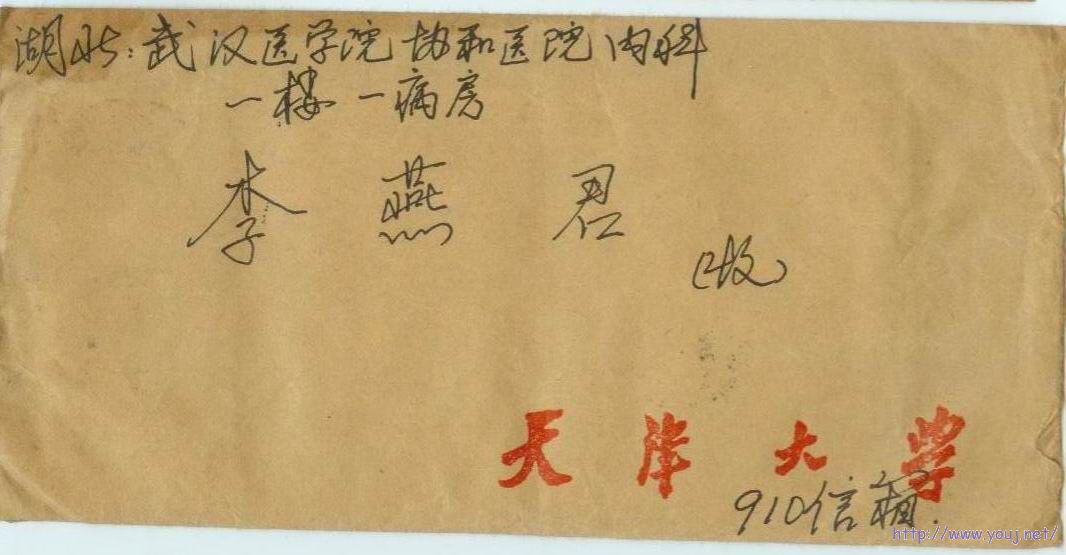 湖北:武汉医学院协和医院内科
一楼一病房
李燕君
(收)
天津大学
910信箱.
http://www.youj.net/